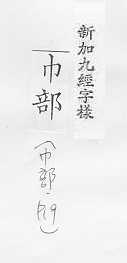 新加九經字樣
巾部
(巾部